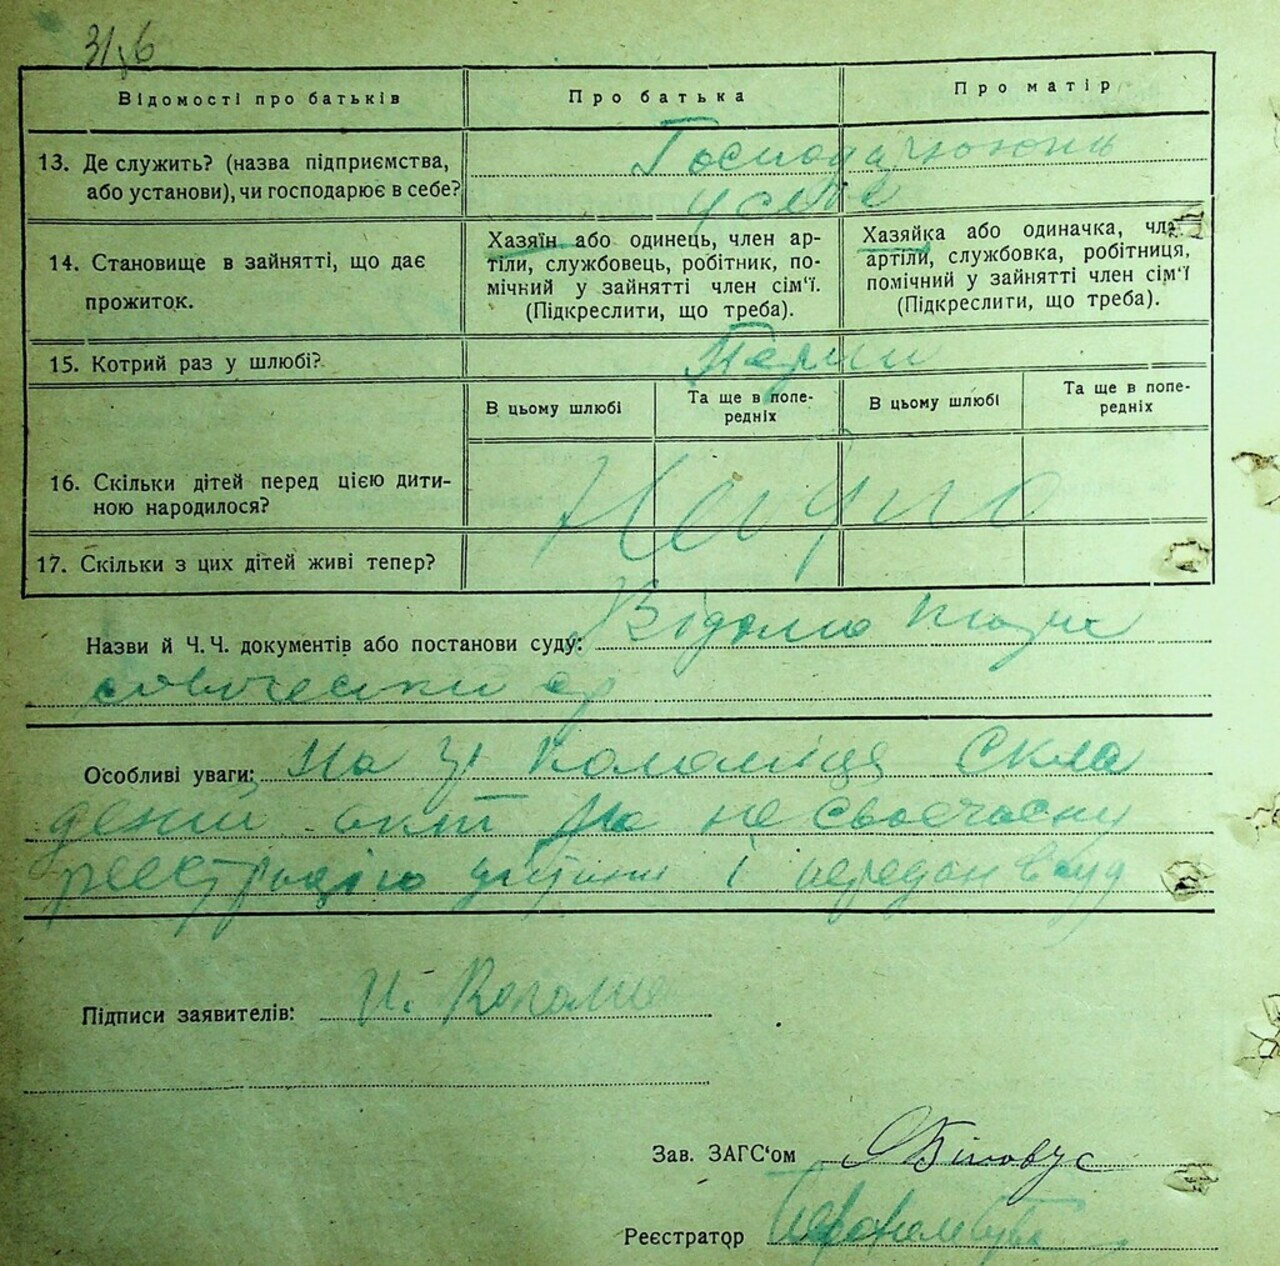 Відомості про батьків
Про батька
Про матір
13. Де служить? (назва підприємства,
або установи), чи господарює в себе?
Господарюють
у себе
14. Становище в зайнятті, що дає
прожиток.
Хазяїн або одинець, член ар-
тіли, службовець, робітник, по-
мічний у зайнятті член сім'ї.
(Підкреслити, що треба).
Хазяйка або одиначка, член
артіли, службовка, робітниця,
помічний у зайнятті член сім'ї
(Підкреслити, що треба).
15. Котрий раз у шлюбі?
Перши
В цьому шлюбі
Та ще в попе-
редніх
В цьому шлюбі
Та ще в попе-
редніх
16. Скільки дітей перед цією дити-
ною народилося?
17. Скільки з цих дітей живі тепер?
Назви й Ч.Ч. документів або постанови суду: Відомо
Особливі уваги: На Коломійця Скла
дений акт на не своєчасну
реєстрацію дитини і передан в суд
Підписи заявителів:
Зав. ЗАГС'ом Біловус
Реєстратор